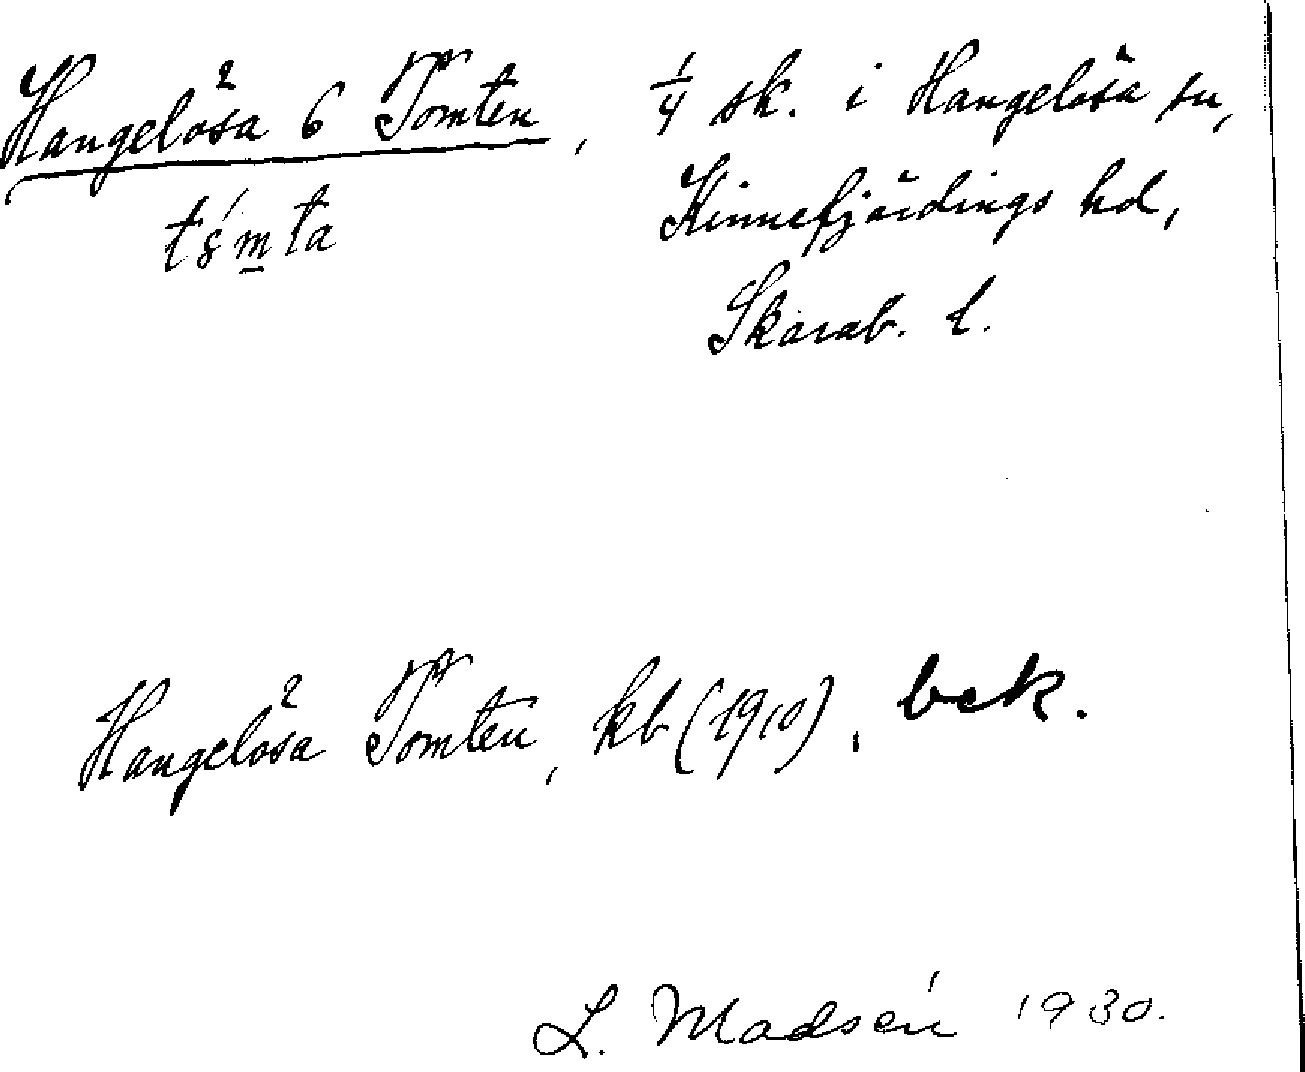 Hangelösa 6 Tomten, 1/4 sk. i Hangelösa sn,
Kinnefjärdings hd,
Skarab. l.
Hangelösa Tomten, kb (1910), bek.
L. Madsén 1930.